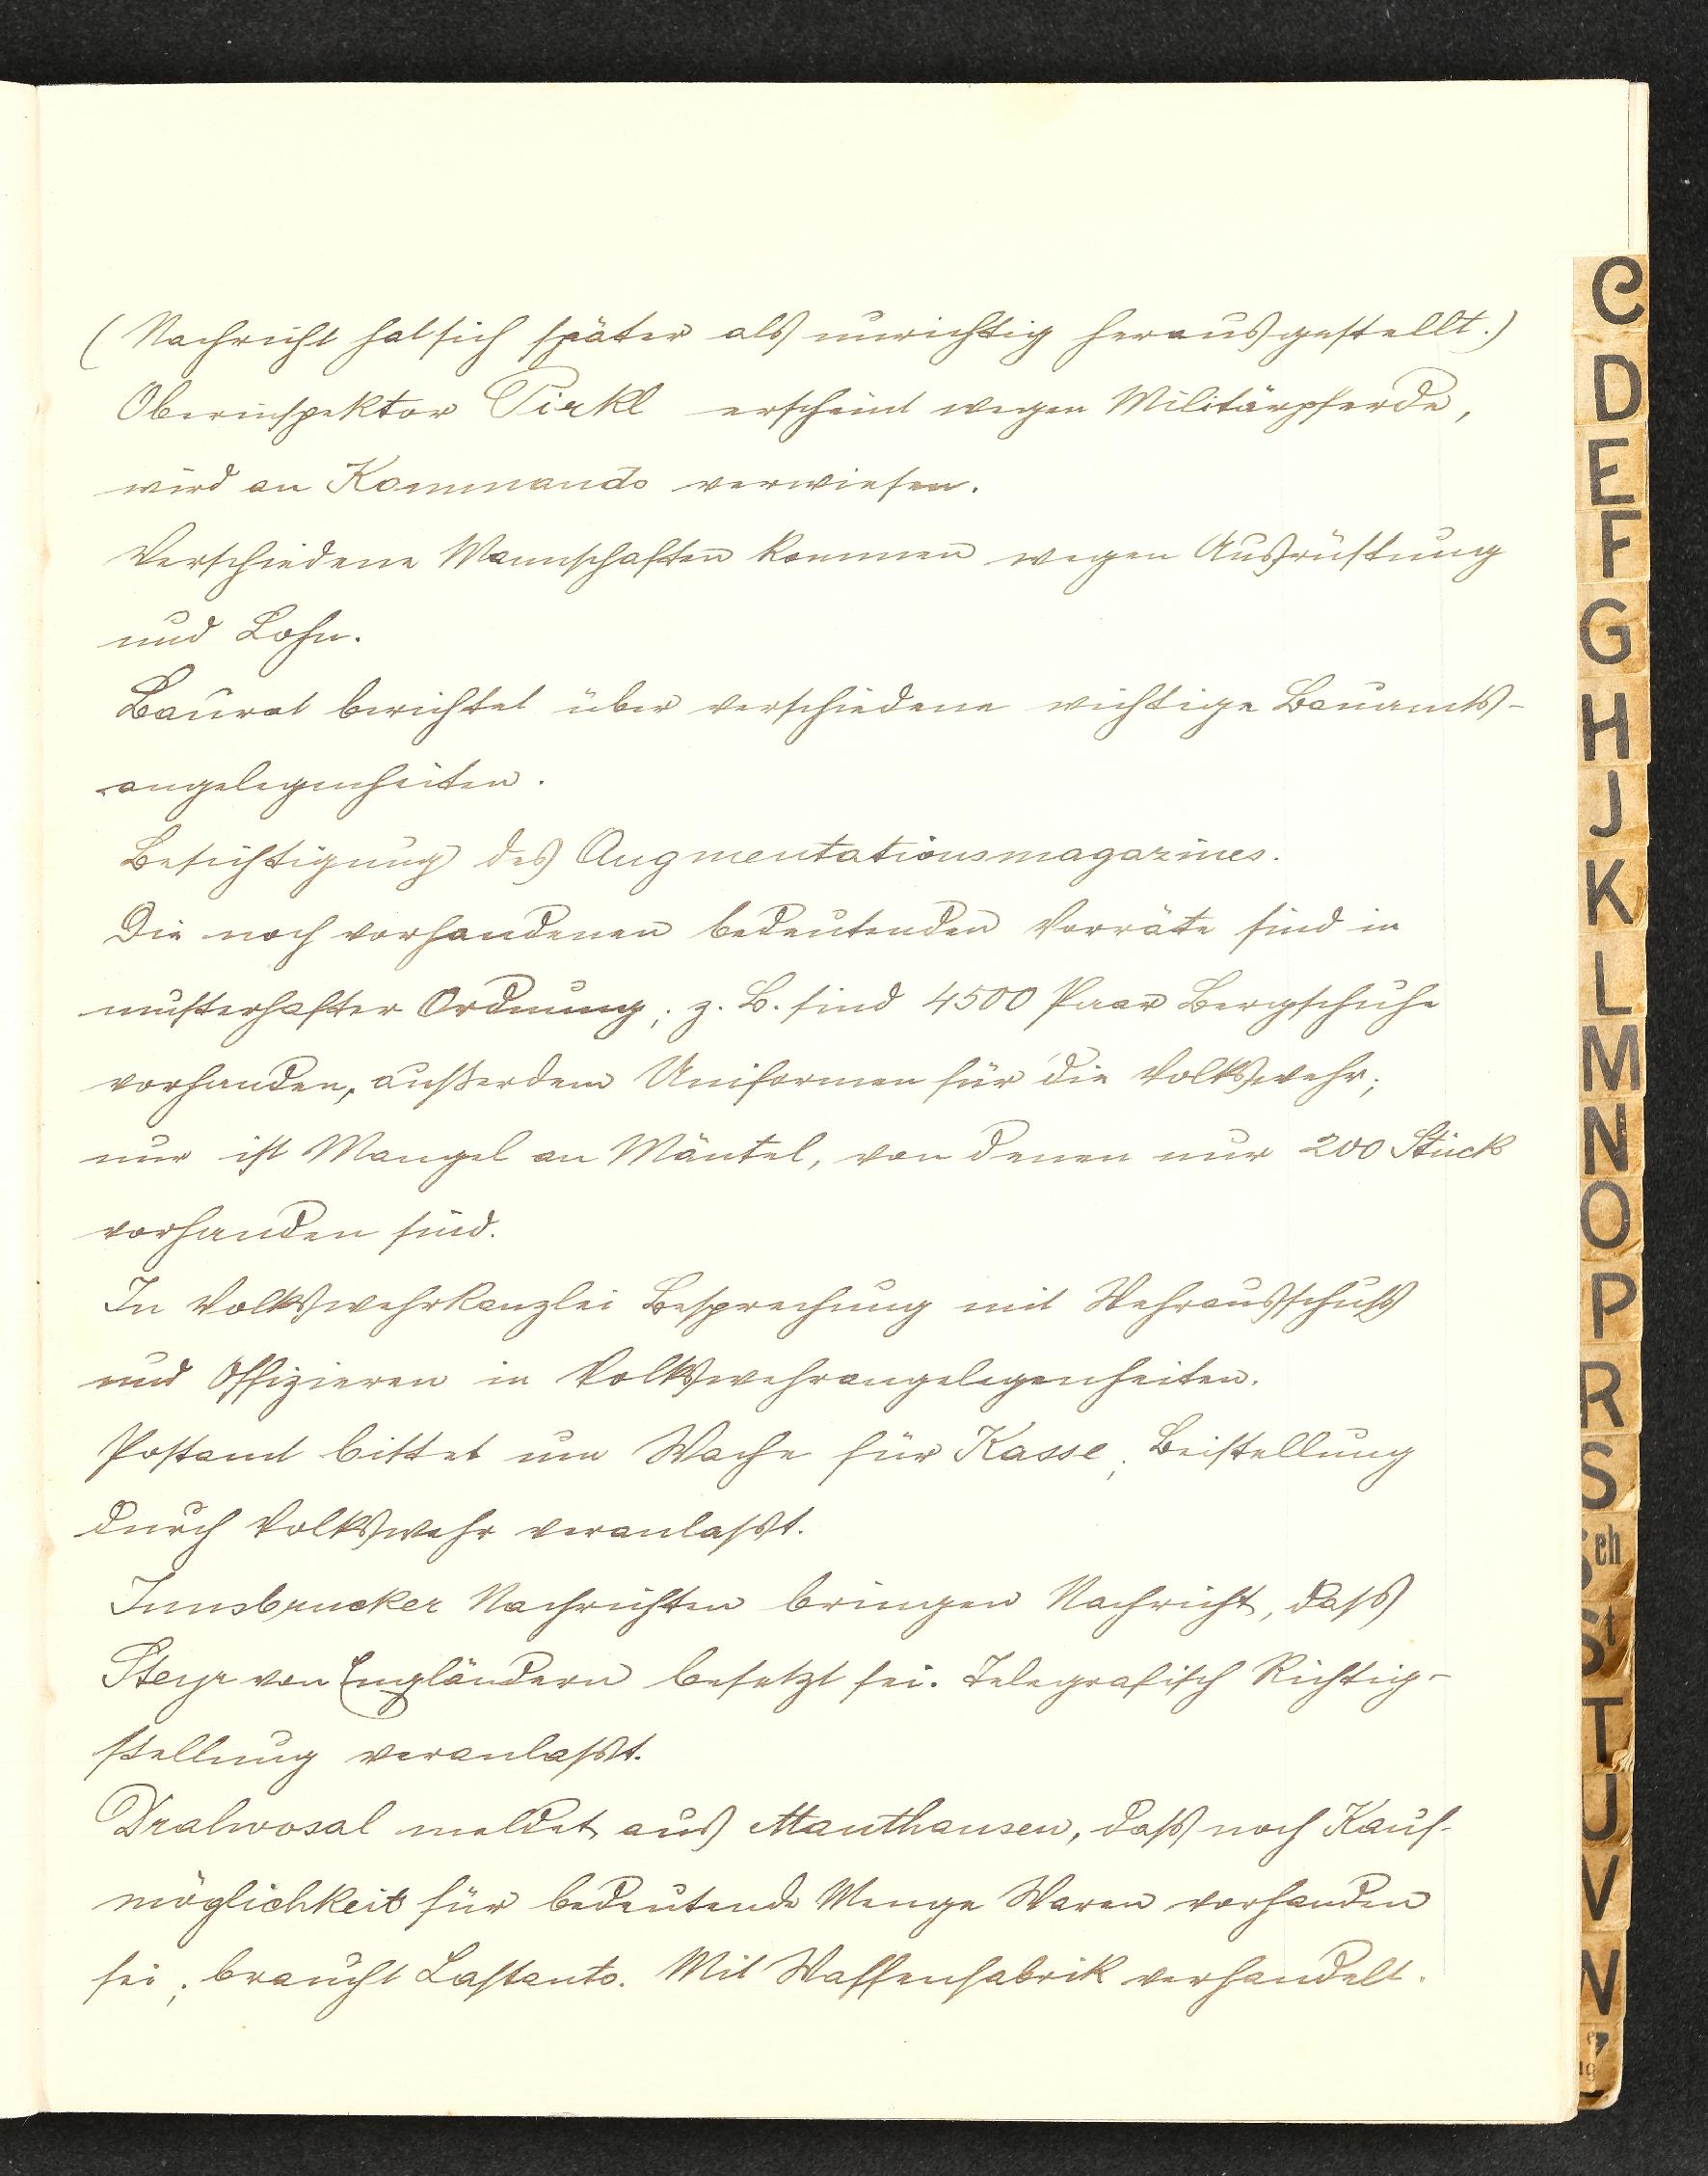 (Nachricht hat sich später als unrichtig herausgestellt.)
Oberinspektor Pirkl erscheint wegen Militärpferde,
wird an Kommando verwiesen.
Verschiedene Mannschaften kommen wegen Ausrüstung
und Lohn.
Baurat berichtet über verschiedene wichtige Bauamts-
angelegenheiten.
Besichtigung des Augmentationsmagazines.
Die noch vorhandenen bedeutenden Vorräte sind in
musterhafter Ordnung; z. B. sind 4500 Paar Bergschuhe
vorhanden, außerdem Uniformen für die Volkswehr;
nur ist Mangel an Mäntel, von denen nur 200 Stück
vorhanden sind.
In Volkswehrkanzlei Besprechung mit Wehrausschuß
und Offizieren in Volkswehrangelegenheiten.
Postamt bittet um Wache für Kasse; Beistellung
durch Volkswehr veranlaßt.
Innsbrucker Nachrichten bringen Nachricht, daß
Steyr von Engländern besetzt sei. Telegrafisch Richtig-
stellung veranlaßt.
meldet aus Mauthausen, daß noch Kauf-
möglichkeit für bedeutende Menge Waren vorhanden
sei; braucht Lastauto. Mit Waffenfabrik verhandelt.
C
D
E
F
G
H
J
K
L
M
N
O
P
R
S
Sch
St
T
U
V
W